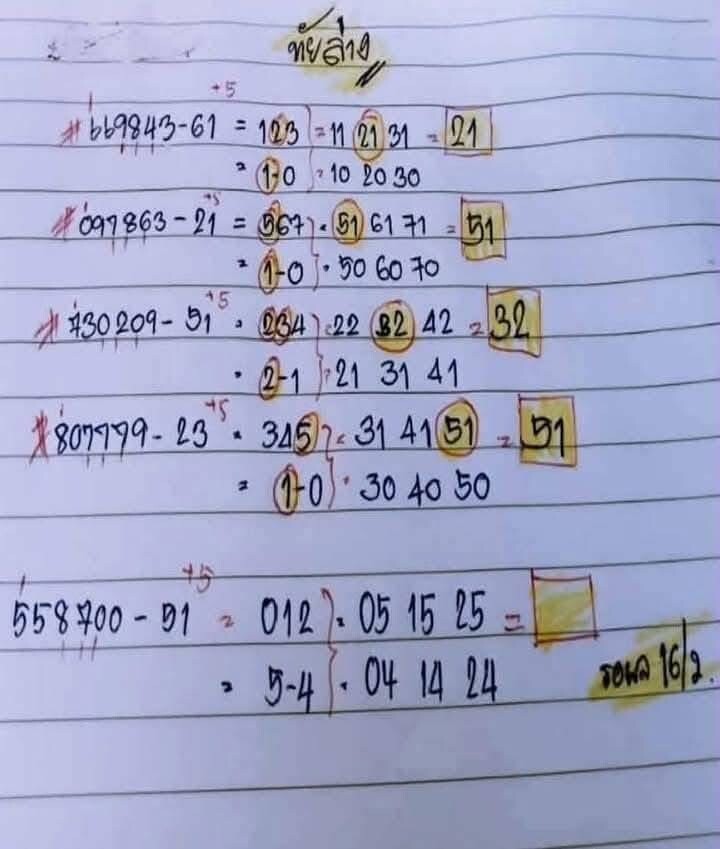 ทัยล่าง
+5
# 669843-61 = 123 } = 11 21 31 = 21
= 1-0 } = 10 20 30
+5
# 097863 - 21 = 567 } = 51 61 71 = 51
= 1-0 } = 50 60 70
+5
# 730209 - 51 = 234 } = 22 32 42 = 32
= 2-1 } = 21 31 41
+5
# 807779 - 23 = 345 } = 31 41 51 = 51
= 1-0 } = 30 40 50
+5
558700 - 51 = 012 } = 05 15 25 =
= 5-4 } = 04 14 24
รอผล 16/2.